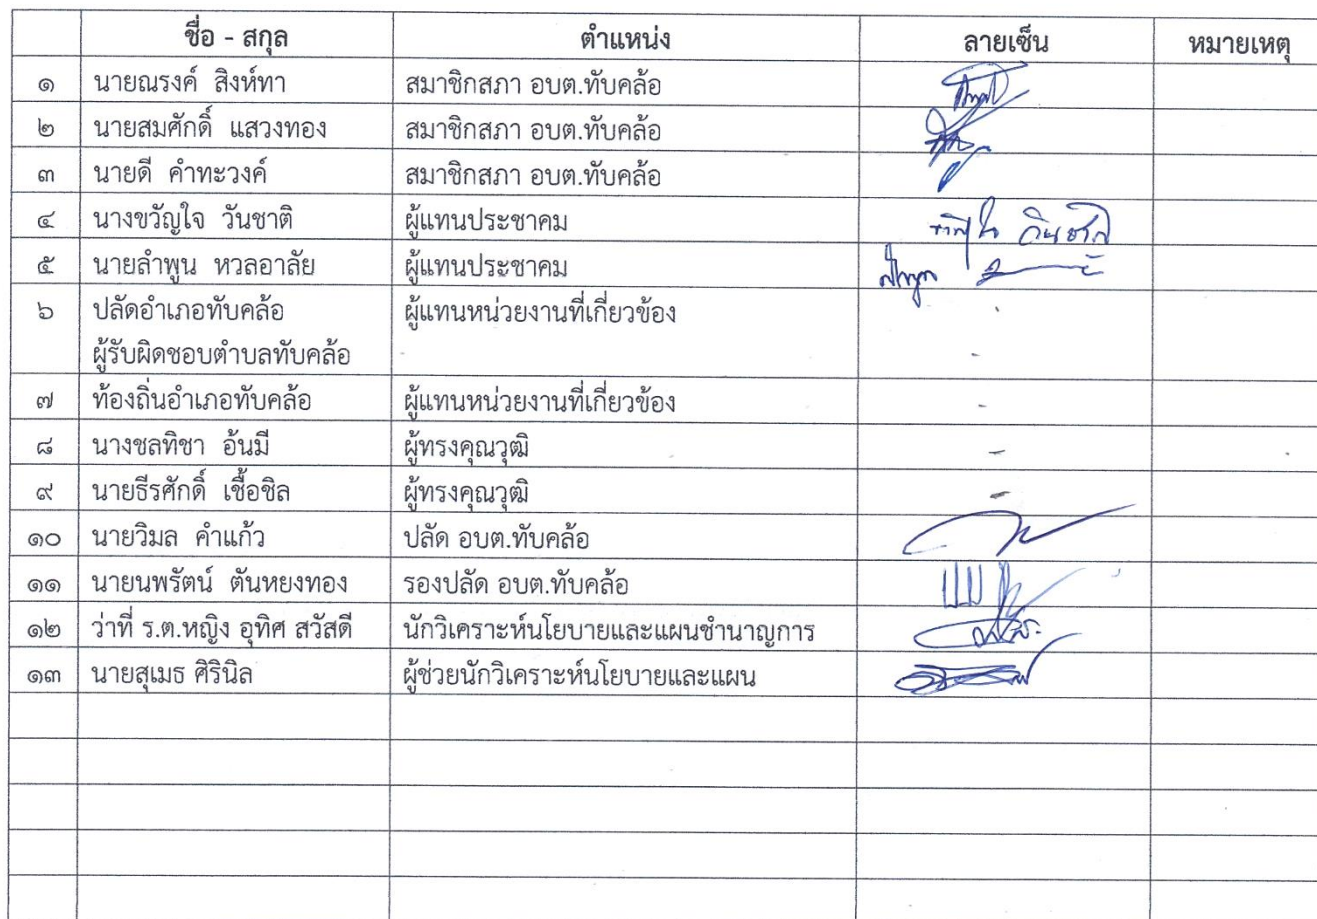 ชื่อ - สกุล ตำแหน่ง ลายเซ็น หมายเหตุ
๑ นายณรงค์ สิงห์ทา สมาชิกสภา อบต.ทับคล้อ
๒ นายสมศักดิ์ แสวงทอง สมาชิกสภา อบต.ทับคล้อ
๓ นายดี คำทะวงค์ สมาชิกสภา อบต.ทับคล้อ
๔ นางขวัญใจ วันชาติ ผู้แทนประชาคม
๕ นายลำพูน หวลอาลัย ผู้แทนประชาคม
๖ ปลัดอำเภอทับคล้อ ผู้แทนหน่วยงานที่เกี่ยวข้อง
ผู้รับผิดชอบตำบลทับคล้อ -
๗ ท้องถิ่นอำเภอทับคล้อ ผู้แทนหน่วยงานที่เกี่ยวข้อง -
๘ นางชลทิชา อ้นมี ผู้ทรงคุณวุฒิ -
๙ นายธีรศักดิ์ เชื้อชิล ผู้ทรงคุณวุฒิ -
๑๐ นายวิมล คำแก้ว ปลัด อบต.ทับคล้อ
๑๑ นายนพรัตน์ ตันหยงทอง รองปลัด อบต.ทับคล้อ
๑๒ ว่าที่ ร.ต.หญิง อุทิศ สวัสดี นักวิเคราะห์นโยบายและแผนชำนาญการ
๑๓ นายสุเมธ ศิรินิล ผู้ช่วยนักวิเคราะห์นโยบายและแผน